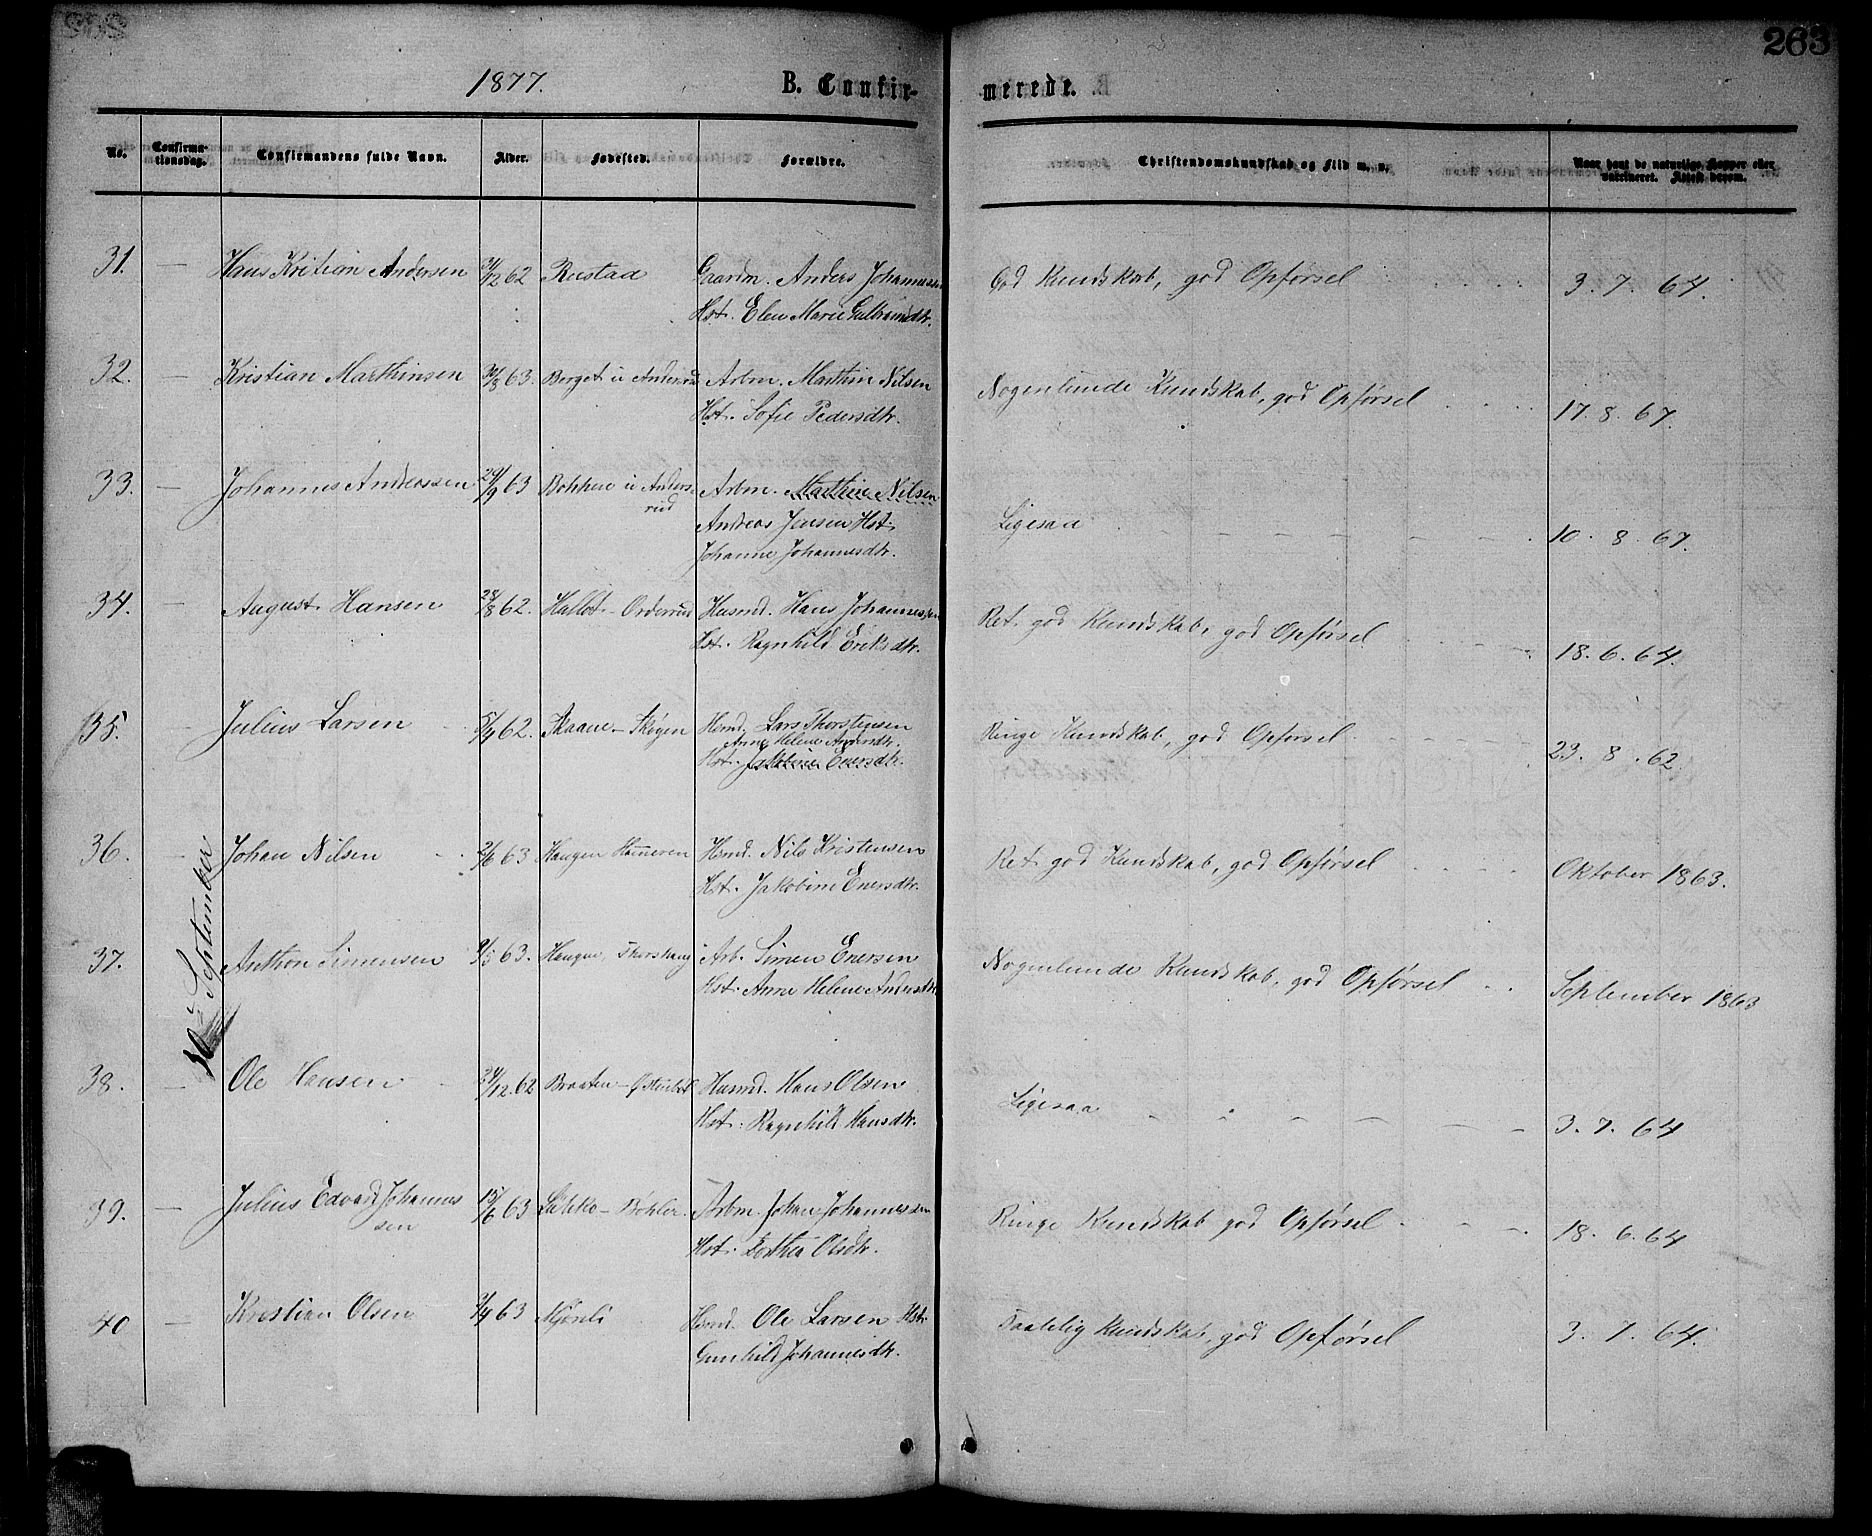 263
1877.
B. Confir-
merede.
No.
Confirma-
tionsdag.
Confirmandens fulde Navn.
Alder.
Fødested.
Forældre.
Christendomskundskab og Flid m. v.
Naar havt de naturlige Kopper eller
vakcineret. Attest derom.
30te September
31. — Hans Kritian Andersen 31/12 62 Rustad Gaardm. Anders Johannessen
Hst. Elen Marie Gulbrandsdtr.
God Kundskab, god Opførsel 3. 7. 64.
32. — Kristian Marthinsen 63. Berget u Anderud Arbm. Marthin Nilsen
Hst. Sofie Pedersdtr.
Nogenlunde Kundskab, god Opførsel 17. 8. 67.
33. — Johannes Andreassen 29/9 63 Bakken u Anders-
rud
Arbm. Marthin Nilsen
Andreas Jensen Hst.
Johanne Johannesdtr.
Ligesaa 10. 8. 67.
34. — August Hansen 28/8 62. Orderud Husmd. Hans Johannessen
Hst. Ragnhild Eriksdtr.
Ret god Kundskab, god Opførsel 18. 6. 64.
35. Julius Larsen 62. Skaane – Skogen Hsmd. Lars Thorstensen
Anne Helene Andersdtr.
Hst. Jakobine Enersdtr.
Ringe Kundskab, god Opførsel 23. 8. 62.
36. — Johan Nilsen 2/6 63 Haugen Hameren Hsmd. Nils Kristensen
Hst. Jakobine Enersdtr.
Ret god Kundskab, god Opførsel Oktober 1863.
37. Anthon Simensen 9/5 63. Haugen, Thorshaug Arb. Simen Enersen
Hst. Anne Helene Andersdtr
Nogenlunde Kundskab, god Opførsel September 1863
38. — Ole Hansen 12. 62 Braaten – Husmd. Hans Olsen
Hst. Ragnhild Hansdtr.
Ligesaa 3. 7. 64
39. — Julius Edvard Johannes
sen
15/6 63 – Bøhler. Arbm. Johan Johannessen
Hst. Dorthea Olsdtr.
Ringe Kundskab god Opførsel 18. 6. 64
40 — Kristian Olsen 63 Mjønli Hsmd. Ole Larsen Hst.
Gunhild Johannesdtr.
Taalelig Kundskab, god Opførsel 3. 7. 64.